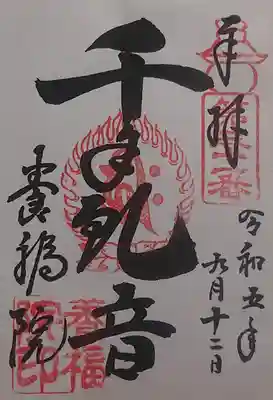 奉拝
令和五年
九月十二日
千手観音
養福院
養福
院印